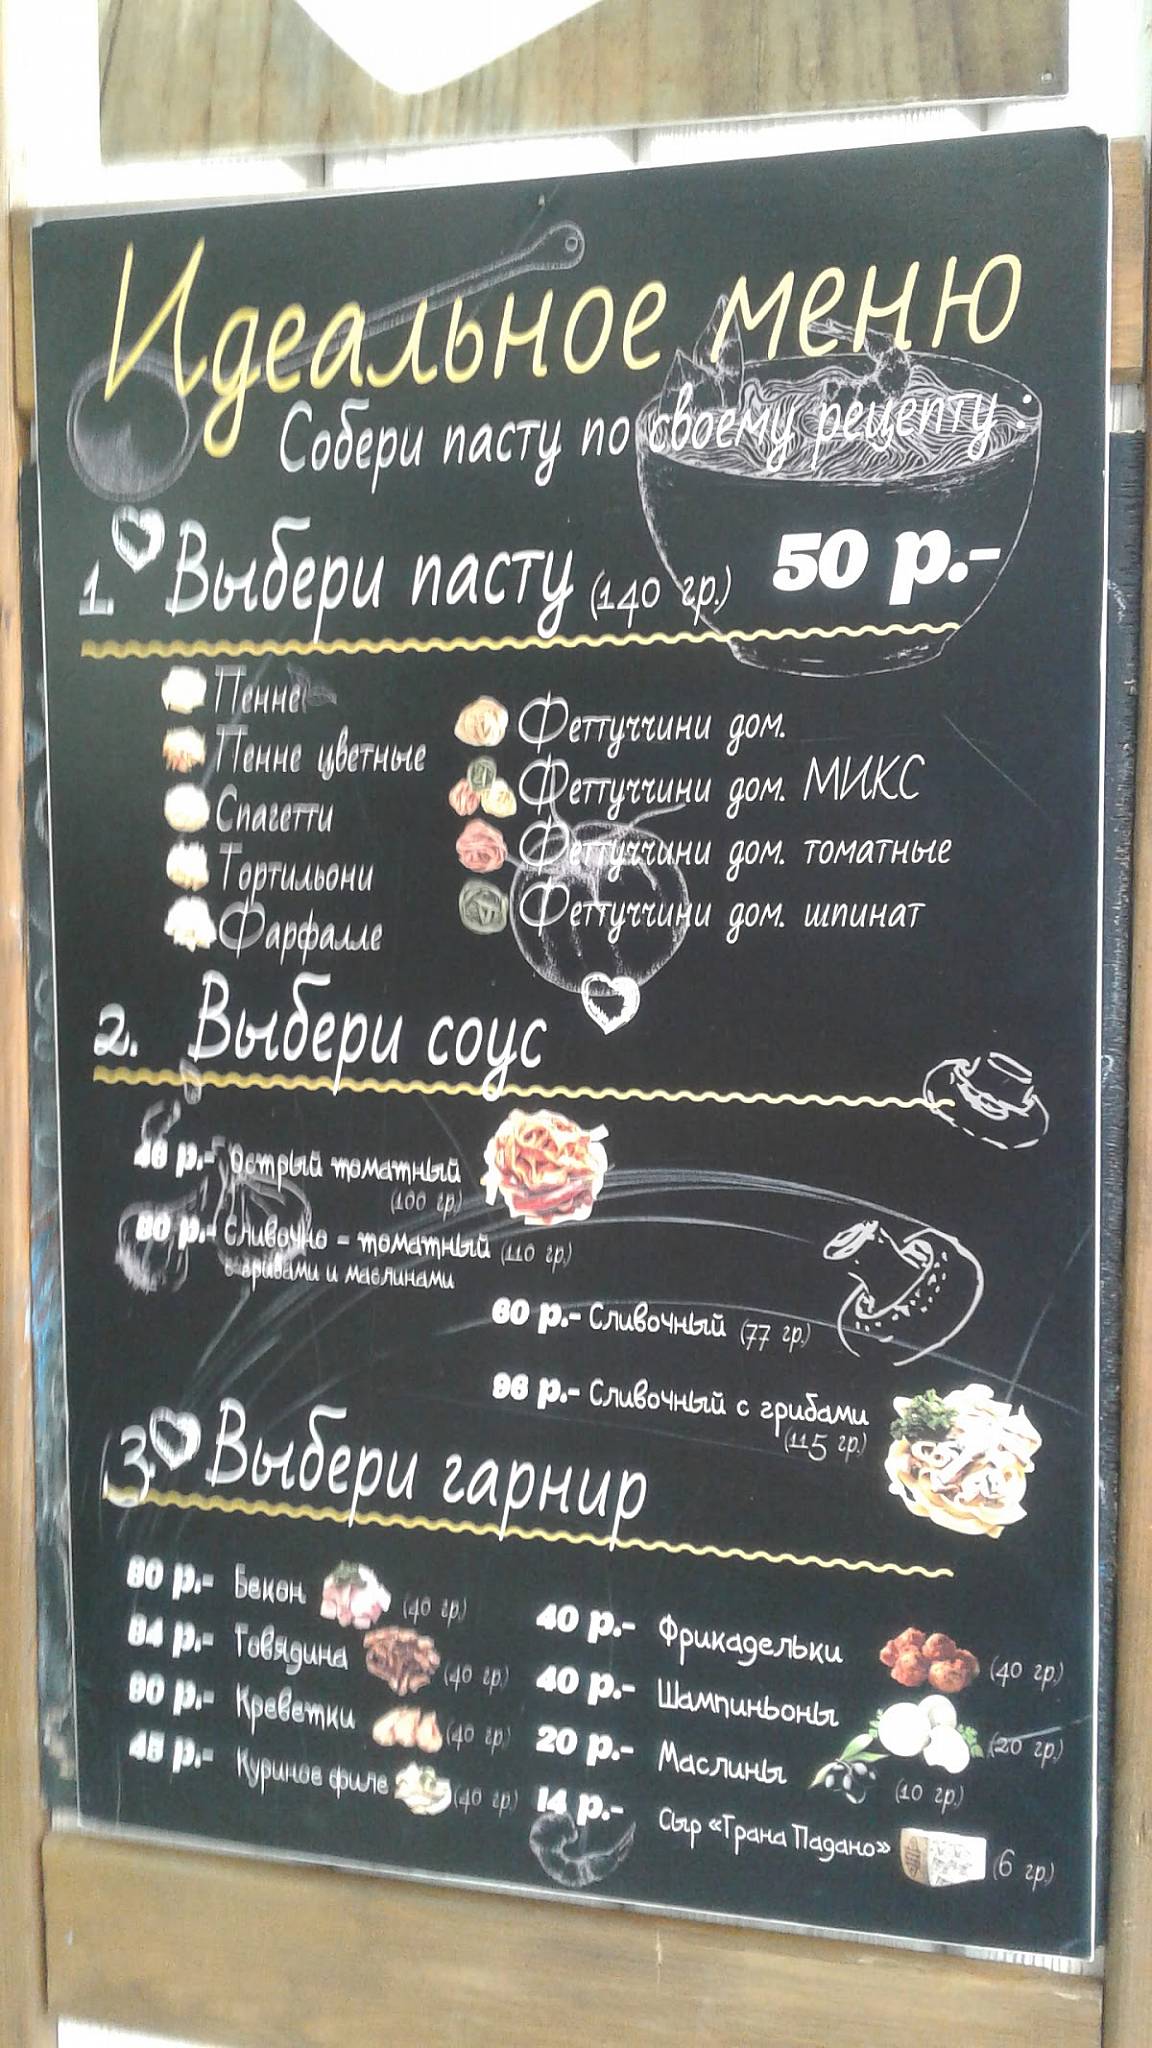 Идеальное меню
Собери пасту по своему рецепту:
1. Выбери пасту (140 гр.) 50 р.-
Пенне
Пенне цветные
Спагетти
Тортильони
Фарфалле
Феттуччини дом.
Феттуччини дом. МИКС
Феттуччини дом. томатные
Феттуччини дом. шпинат
2. Выбери соус
р.- Острый томатный
(100 гр.)
р.- Сливочно - томатный (110 гр.)
с грибами и маслинами
60 р.- Сливочный (77 гр.)
96 р.- Сливочный с грибами
(115 гр.)
3. Выбери гарнир
р.- Бекон (40 гр.)
р.- Говядина (40 гр.)
р.- Креветки (40 гр.)
р.- Куриное филе (40 гр.)
40 р.- Фрикадельки (40 гр.)
40 р.- Шампиньоны (20 гр.)
20 р.- Маслины (10 гр.)
14 р.- Сыр «Грана Падано» (6 гр.)